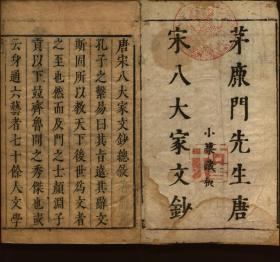 茅鹿門先生唐
宋八大家文鈔
唐宋八大家文鈔總敘
孔子之繫易曰其旨遠其辭文
斯固所以教天下後世為文者
之至也然而及門之士顏淵子
貢以下並齊魯間之秀傑也或
云身通六藝者七十餘人文學